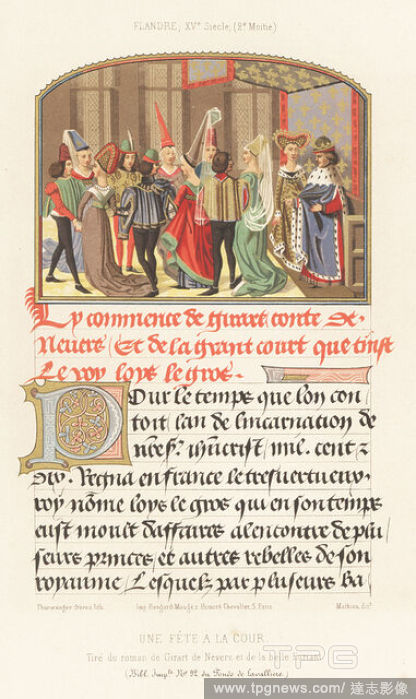 FLANDRE, XVe Siècle, (2e Moitié)
Cy commence de girart conte de
Nevers Et de la grant court que tinst
Le roy loys le gros.
Pour le temps que lon con
toit lan de lincarnation de
mil. cent &
dix. Regna en france le tresvertueux
roy nōme loys le gros qui en son temps
eust moult daffaires alencontre de plu
seurs princes et autres rebelles de son
royaume Lesquelz par pluseurs ba
Thurwanger frères lith.
Imp. Hangard-Maugé, r. Honoré Chevalier, 5, Paris
Mathieu, dirt.
UNE FÊTE A LA COUR.
Tiré du roman de Girart de Nevers et de la belle
(Bibl. Imple No. 92 du Fonds de Lavallière.)
TPG
www.tpgnews.com/ 達志影像